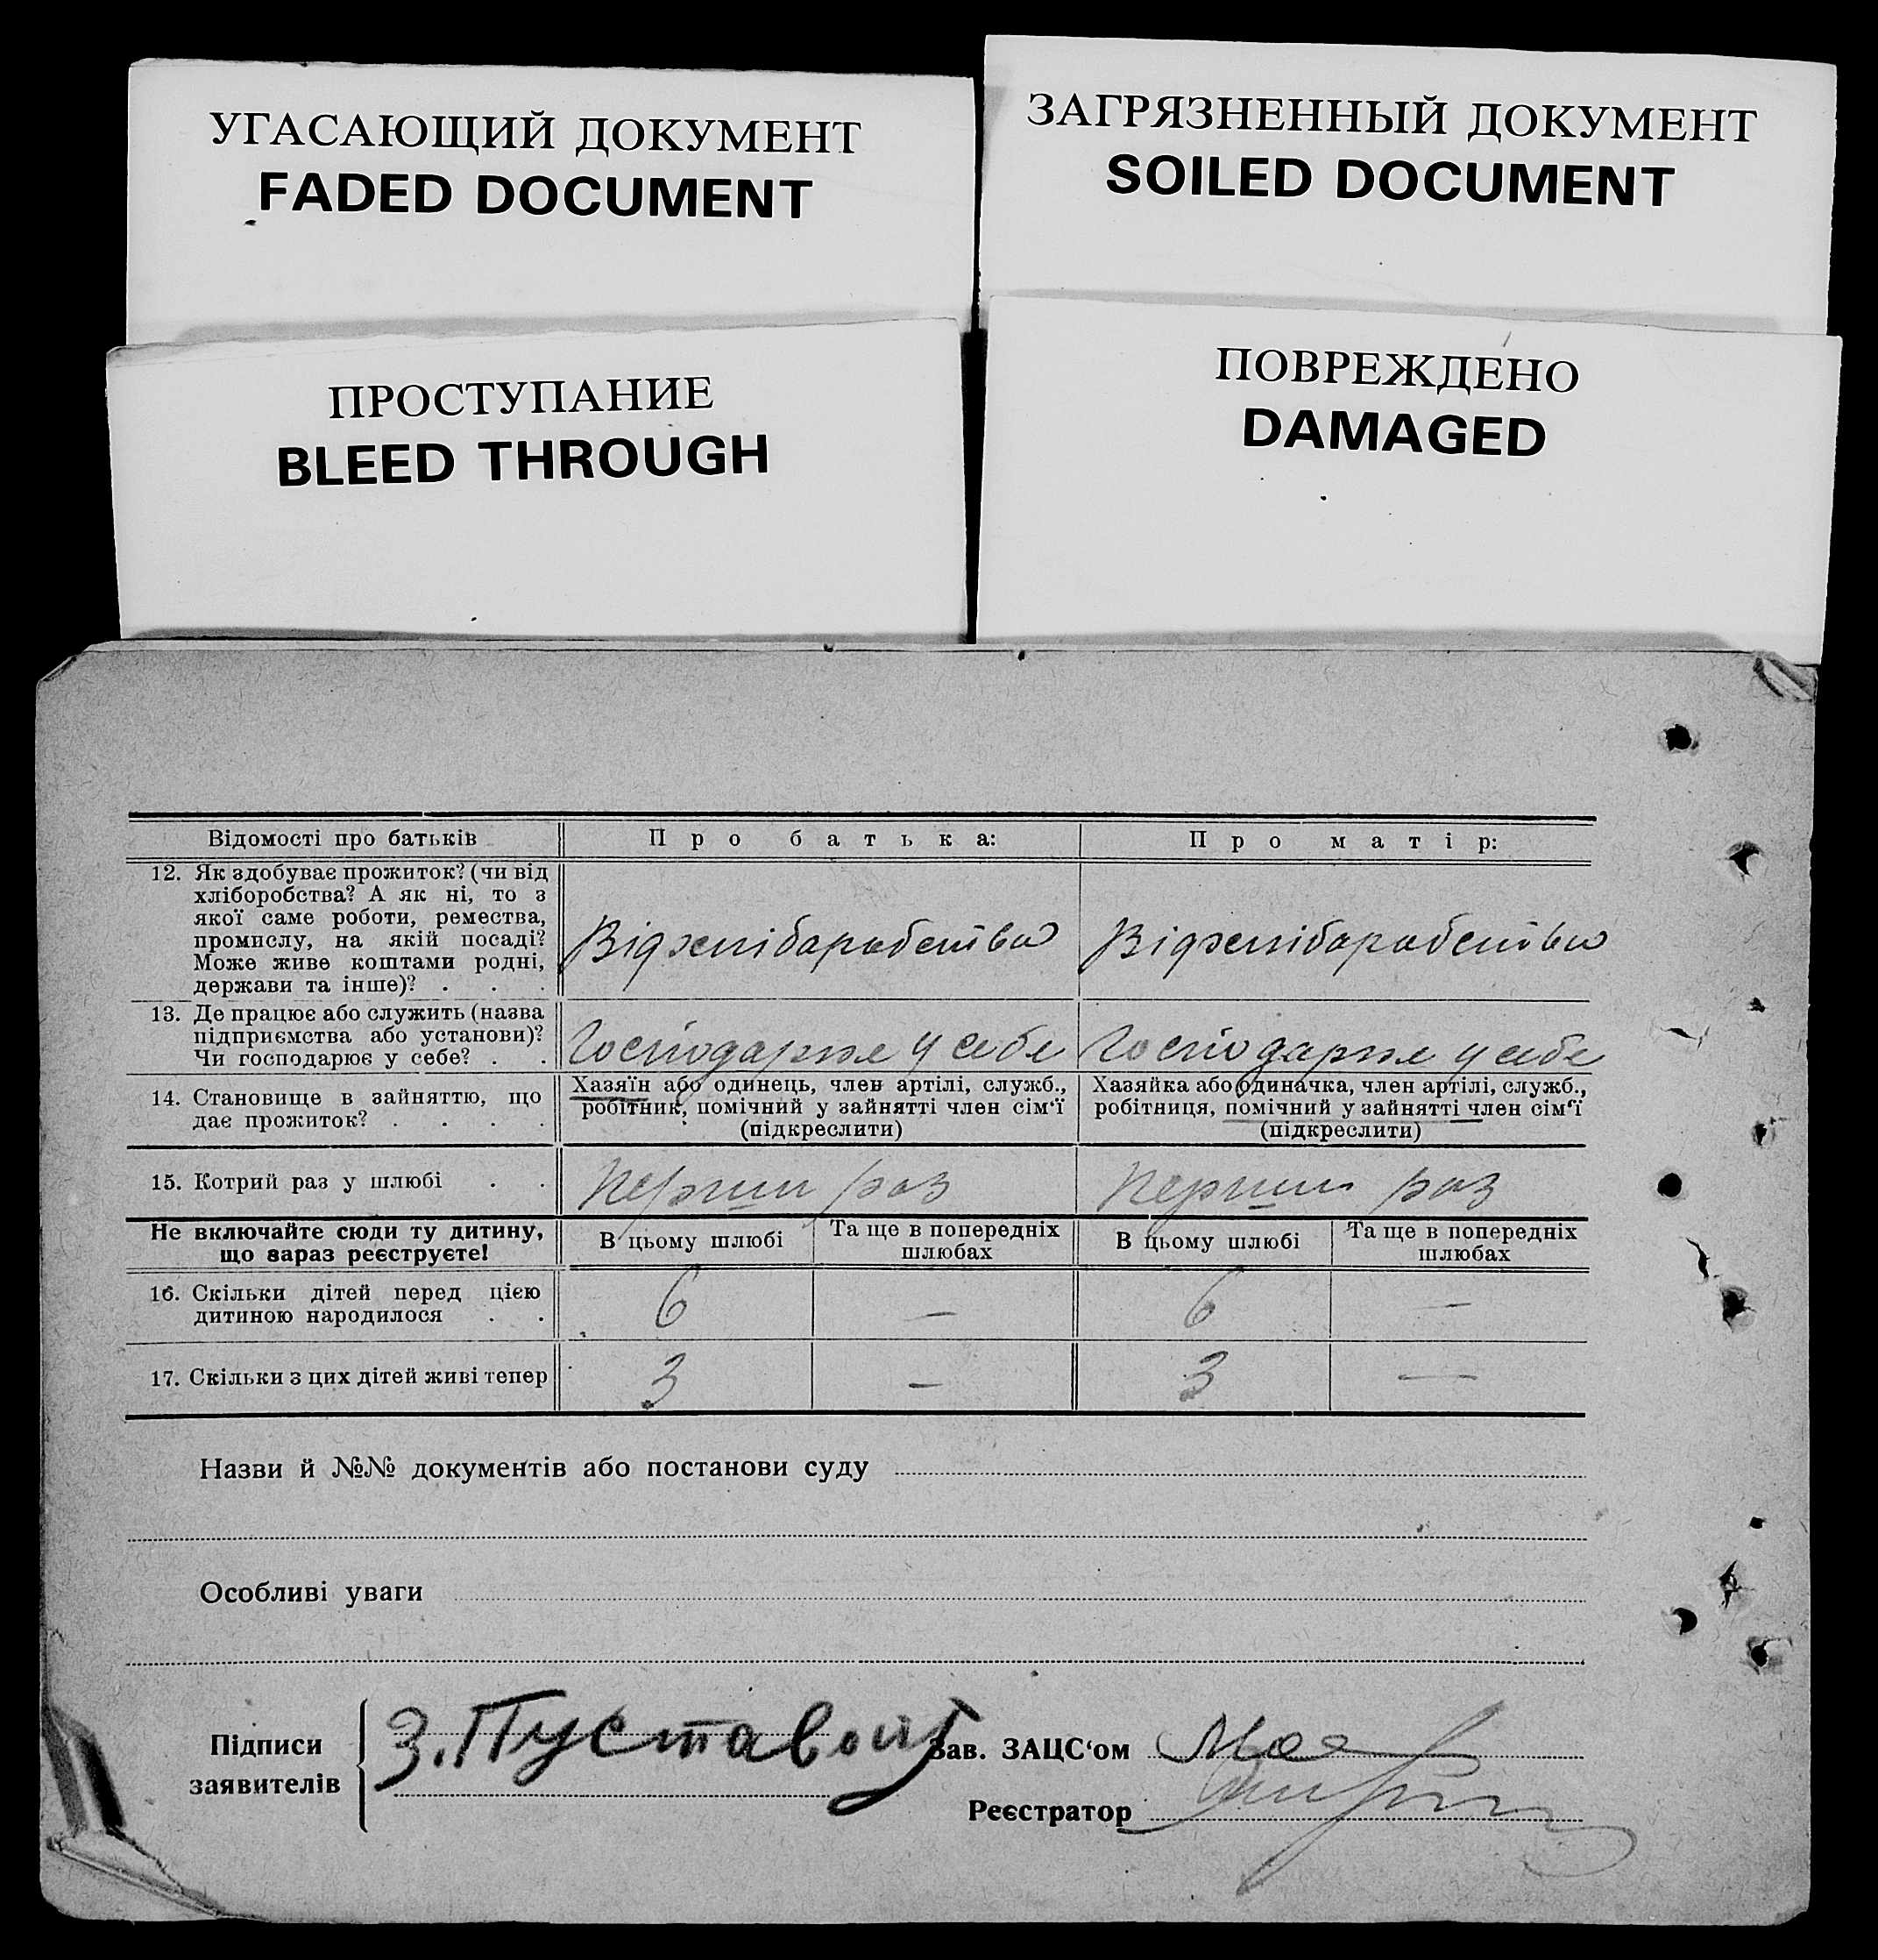 УГАСАЮЩИЙ ДОКУМЕНТ
FADED DOCUMENT
ЗАГРЯЗНЕННЫЙ ДОКУМЕНТ
SOILED DOCUMENT
ПРОСТУПАНИЕ
BLEED THROUGH
ПОВРЕЖДЕНО
DAMAGED
Відомості про батьків
Про батька:
Про матір:
12. Як здобуває прожиток? (чи від
хліборобства? А як ні, то з
якої саме роботи, ремества,
промислу, на якій посаді?
Може живе коштами родні,
держави та інше)? . . .
Від хліборобства
Від хліборобства
13. Де працює або служить (назва
підприємства або установи)?
Чи господарює у себе? . .
Господарює у себе
Господарює у себе
14. Становище в зайняттю, що
дає прожиток? . . . .
Хазяїн або одинець, член артілі, служб.,
робітник, помічний у зайнятті член сім‘ї
(підкреслити)
Хазяйка або одиначка, член артілі, служб.,
робітниця, помічний у зайнятті член сім‘ї
(підкреслити)
15. Котрий раз у шлюбі . .
Перший раз
Перший раз
Не включайте сюди ту дитину,
що зараз реєструєте!
В цьому шлюбі
Та ще в попередніх
шлюбах
В цьому шлюбі
Та ще в попередніх
шлюбах
16. Скільки дітей перед цією
дитиною народилося . .
6 — 6 —
17. Скільки з цих дітей живі тепер
3 — 3 —
Назви й №№ документів або постанови суду
Особливі уваги
Підписи
заявителів
З. Пуставойт
Зав. ЗАЦС‘ом
Реєстратор